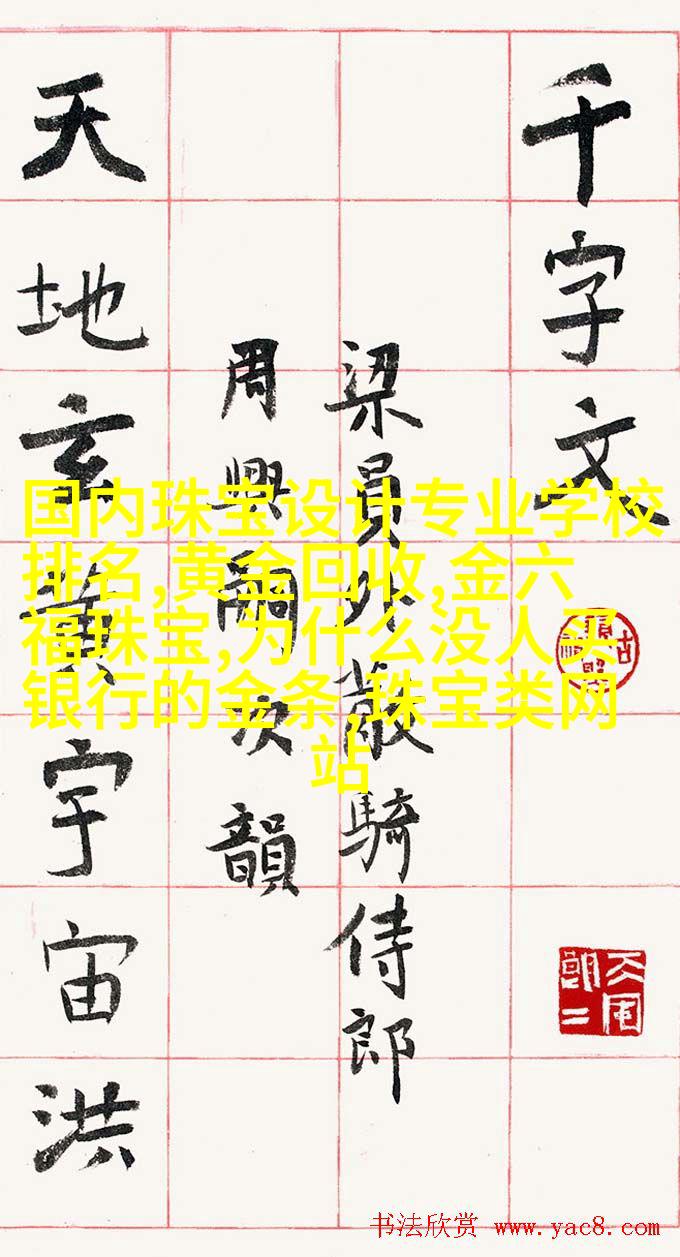 千字文
梁員外散騎侍郎
周興嗣次韻
天地玄黃宇宙洪
国内珠宝设计专业学校
排名,黄金回收,金六
福珠宝,为什么没人买
银行的金条,珠宝类网
站
书法欣赏 www.yac8.com